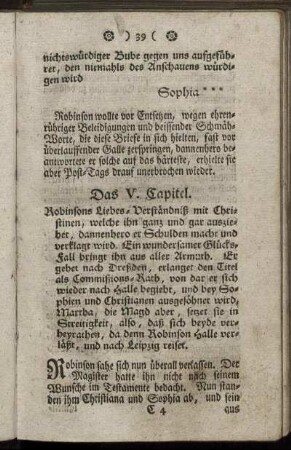 ) 39 (
nichtswürdiger Bube gegen uns aufgefüh-
ret, den niemahls des Anschauens würdi-
gen wird
Sophia ***
Robinson wollte vor Entsetzen, wegen ehren-
rühriger Beleidigungen und beissender Schmäh-
Worte, die diese Briefe in sich hielten, fast vor
überlauffender Galle zerspringen, dannenhero be-
antwortete er solche auf das härteste, erhielte sie
aber Post-Tags drauf unerbrochen wieder.
Das V. Capitel.
Robinsons Liebes-Verständniß mit Chri-
stinen, welche ihn ganz und gar auszie-
het, dannenhero er Schulden macht und
verklagt wird. Ein wundersamer Glücks-
Fall bringt ihn aus aller Armuth. Er
gehet nach Dreßden, erlanget den Titel
als Commißions-Rath, von dar er sich
wieder nach Halle begiebt, und bey So-
phien und Christianen ausgesöhnet wird,
Martha, die Magd aber, setzet sie in
Streitigkeit, also, daß sich beyde ver-
heyrathen, da denn Robinson Halle ver-
läßt, und nach Leipzig reiset.
Robinson sahe sich nun überall verlassen. Der
Magister hatte ihn nicht nach seinem
Wunsche im Testamente bedacht. Nun stan-
den ihm Christiana und Sophia ab, und sein
C 4 aus